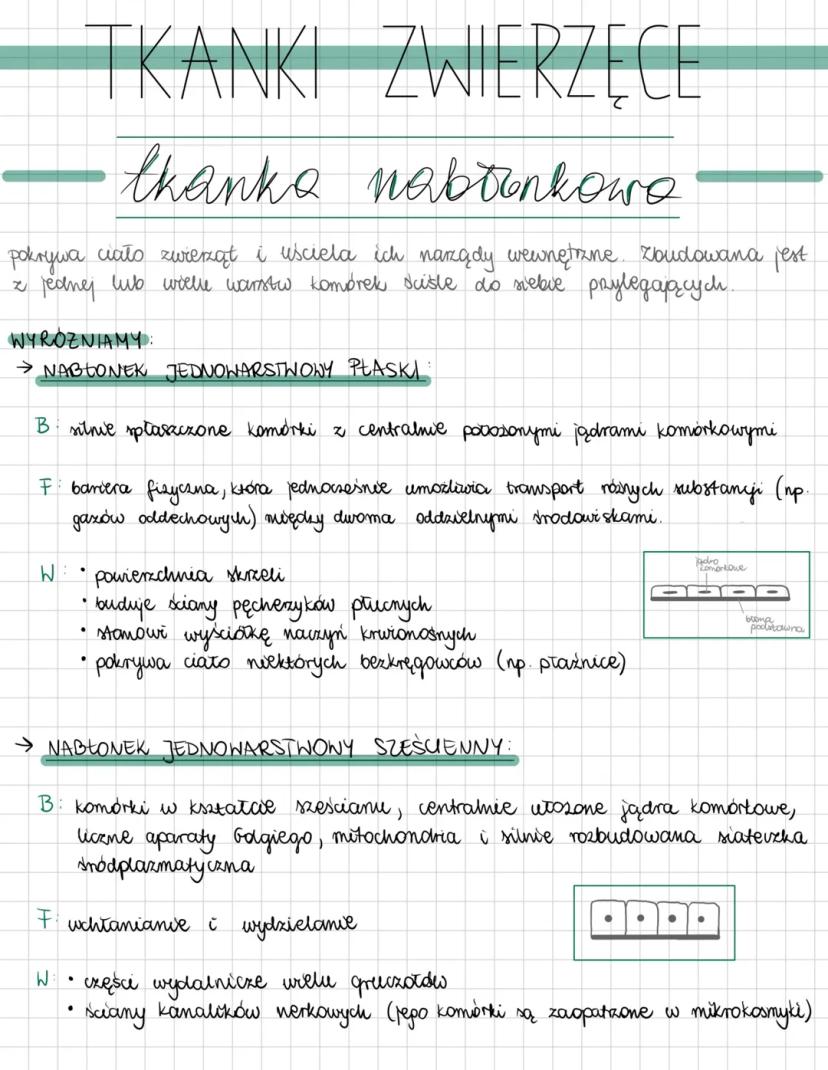 TKANKI ZWIERZĘCE
tkanka nabłonkowa
pokrywa ciało zwierząt i uściela ich narządy wewnętrzne. Zbudowana jest
z jednej lub wielu warstw komórek ściśle do siebie przylegających.
WYRÓŻNIAMY:
→ NABŁONEK JEDNOWARSTWOWY PŁASKI:
B: silnie spłaszczone komórki z centralnie położonymi jądrami komórkowymi
F: bariera fizyczna, która jednocześnie umożliwia transport różnych substancji (np.
gazów oddechowych) między dwoma oddzielnymi środowiskami.
W: • powierzchnia skrzeli
• buduje ściany pęcherzyków płucnych
• stanowi wyściółkę naczyń krwionośnych
• pokrywa ciało niektórych bezkręgowców (np. płaźnice)
jądro
komórkowe
błona
podstawna
→ NABŁONEK JEDNOWARSTWOWY SZEŚCIENNY:
B: komórki w kształcie sześcianu, centralnie ułożone jądra komórkowe,
liczne aparaty Golgiego, mitochondria i silnie rozbudowana siateczka
śródplazmatyczna
F: wchłanianie i wydzielanie
W: • części wydalnicze wielu gruczołów
• ściany kanalików nerkowych (jego komórki są zaopatrzone w mikrokosmyki)